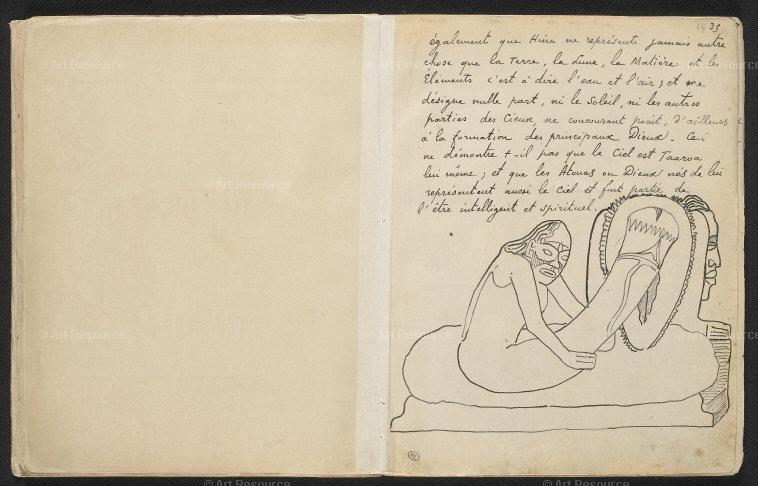 35
également que Hina ne représente jamais autre
chose que la Terre, la Lune, la Matière et les
Eléments c'est à dire l'eau et l'air; et ne
désigne nulle part, ni le Soleil, ni les autres
parties des Cieux, ne concourant point, d'ailleurs
à la formation des principaux Dieux. Ceci
ne démontre t-il pas que le Ciel est Taaroa
lui même; et que les Atouas ou Dieux nés de lui
représentent aussi le Ciel et font partie de
l'être intelligent et spirituel.
© Art Resource
© Art Resource
© Art Resource
© Art Resource
© Art Resource
© Art Resource